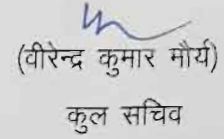 (वीरेन्द्र कुमार मौर्य)
कुल सचिव